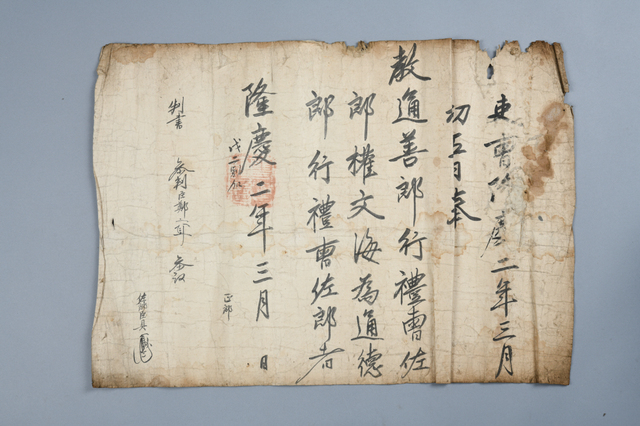 吏曹 二年三月
初五日奉
教通善郎行禮曹佐
郎權文海為通德
郎行禮曹佐郎者
隆慶二年三月 日
判書 參判 參議
正郎